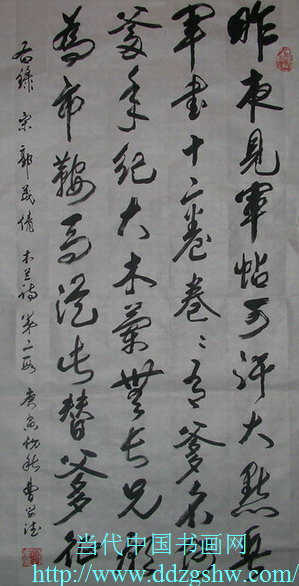 昨夜見軍帖可汗大點兵
軍書十二卷卷〻有爹名阿
爹年紀大木蘭無長兄願
為市鞍馬從此替爹征
録 宋 郭茂倩 木兰诗 第二段 庚寅初秋 曹
当代中国书画网
http://www.ddzgshw.com